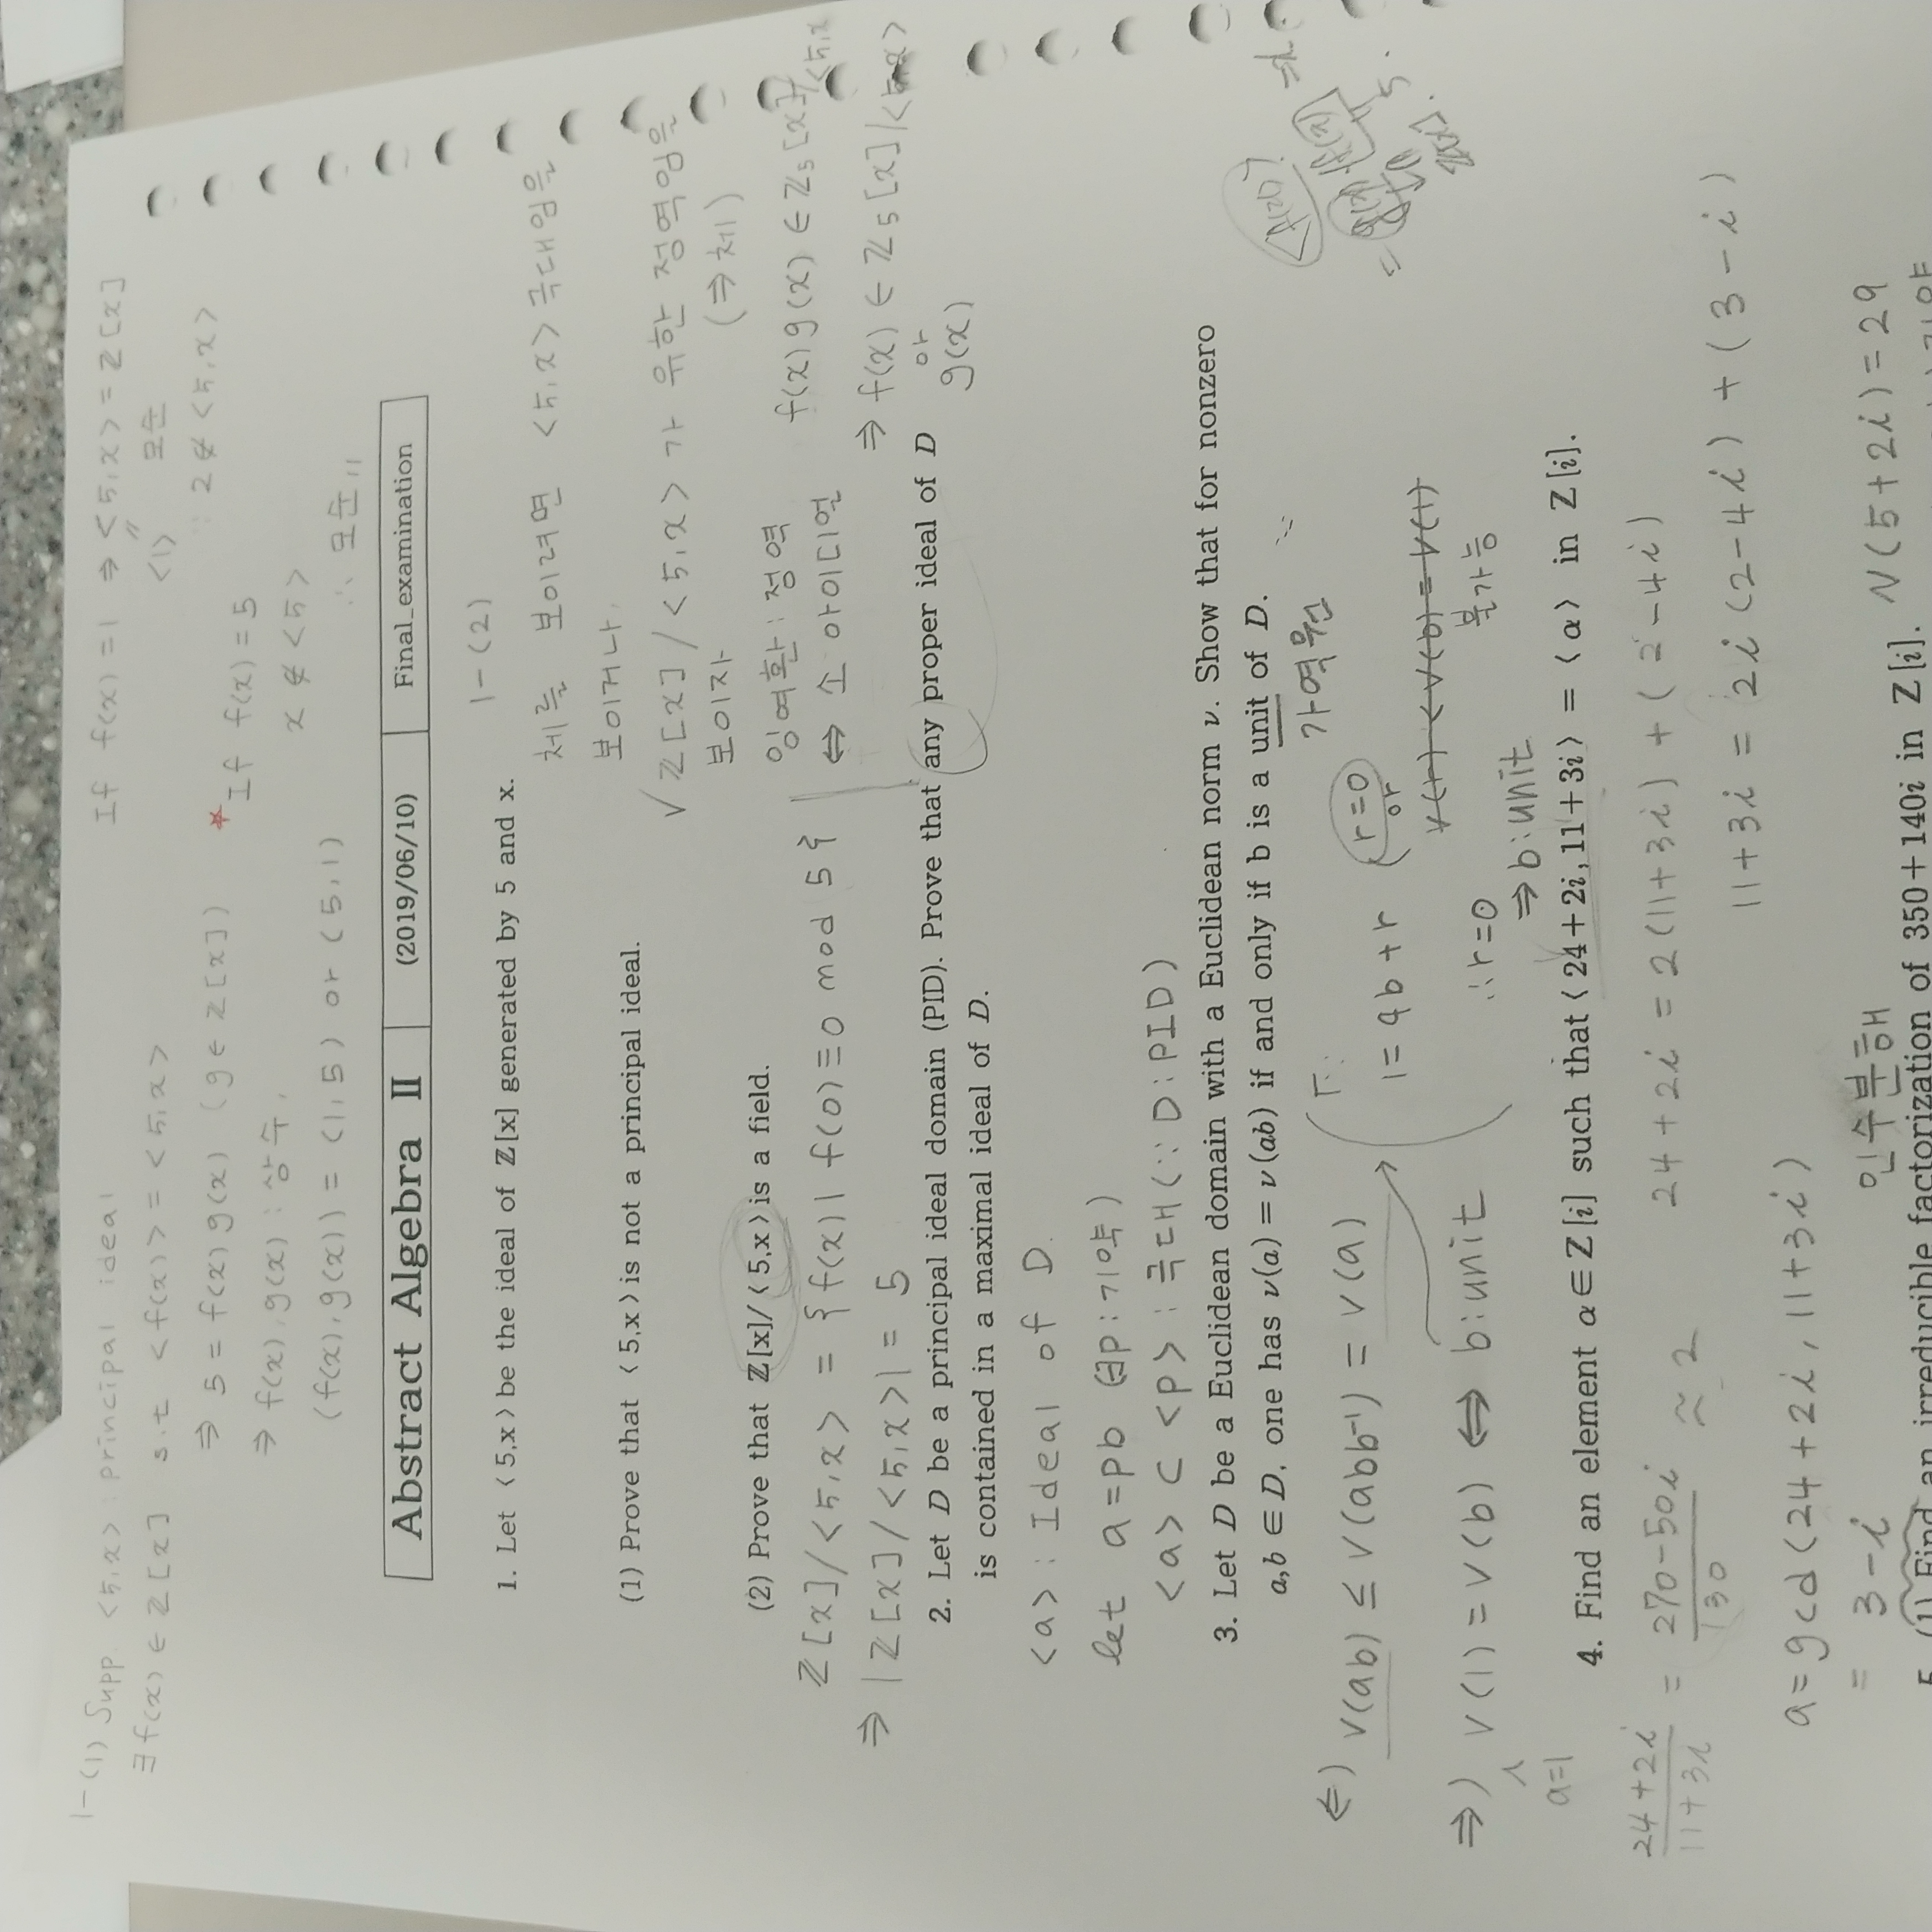 1-(1) Supp. <5,x> : principal ideal
∃f(x) ∈ Z[x] s.t <f(x)> = <5,x>
⇒ 5 = f(x)g(x) (g ∈ Z[x])
⇒ f(x), g(x) : 상수,
(f(x), g(x)) = (1,5) or (5,1)
If f(x)=1 ⇒ <5,x> = Z[x]
〃
<1> 모순
∵ 2∉<5,x>
*If f(x)=5
x ∉ <5>
∴ 모순〃
Abstract Algebra Ⅱ (2019/06/10) Final_examination
1. Let ⟨5,x⟩ be the ideal of ℤ[x] generated by 5 and x.
(1) Prove that ⟨5,x⟩ is not a principal ideal.
(2) Prove that ℤ[x]/⟨5,x⟩ is a field.
Z[x]/<5,x> = {f(x)| f(0)≡0 mod 5}
⇒ |Z[x]/<5,x>| = 5
1-(2)
체를 보이려면 <5,x> 극대임을
보이거나.
√ Z[x]/<5,x> 가 유한 정역임을
보이자 (⇒체)
잉여환 : 정역
⇔ 소 아이디얼
f(x)g(x) ∈ Z5[x]/<5,x
⇒ f(x) ∈ Z5[x]/<5,x>
or
g(x)
2. Let D be a principal ideal domain (PID). Prove that any proper ideal of D
is contained in a maximal ideal of D.
<a> : Ideal of D.
let a=pb (∃p:기약)
<a> ⊂ <p> : 극대(∵ D:PID)
3. Let D be a Euclidean domain with a Euclidean norm ν. Show that for nonzero
a,b ∈ D, one has ν(a) = ν(ab) if and only if b is a unit of D.
가역원
⇐) v(ab) ≤ v(abb⁻¹) = v(a)
⇒) v(1) = v(b) ⇔ b:unit
a=1
1 = qb + r
r=0
or
v(r) < v(b) = v(1)
불가능
∴ r=0
⇒ b:unit
4. Find an element α∈Z[i] such that ⟨24+2i, 11+3i⟩ = ⟨α⟩ in Z[i].
24+2i / 11+3i = 270-50i / 130 ≈ 2
24+2i = 2(11+3i) + (2-4i)
11+3i = 2i(2-4i) + (3-i)
a = gcd(24+2i, 11+3i)
= 3-i
인수분해
N(5+2i)=29
5. (1) Find an irreducible factorization of 350+140i in Z[i].